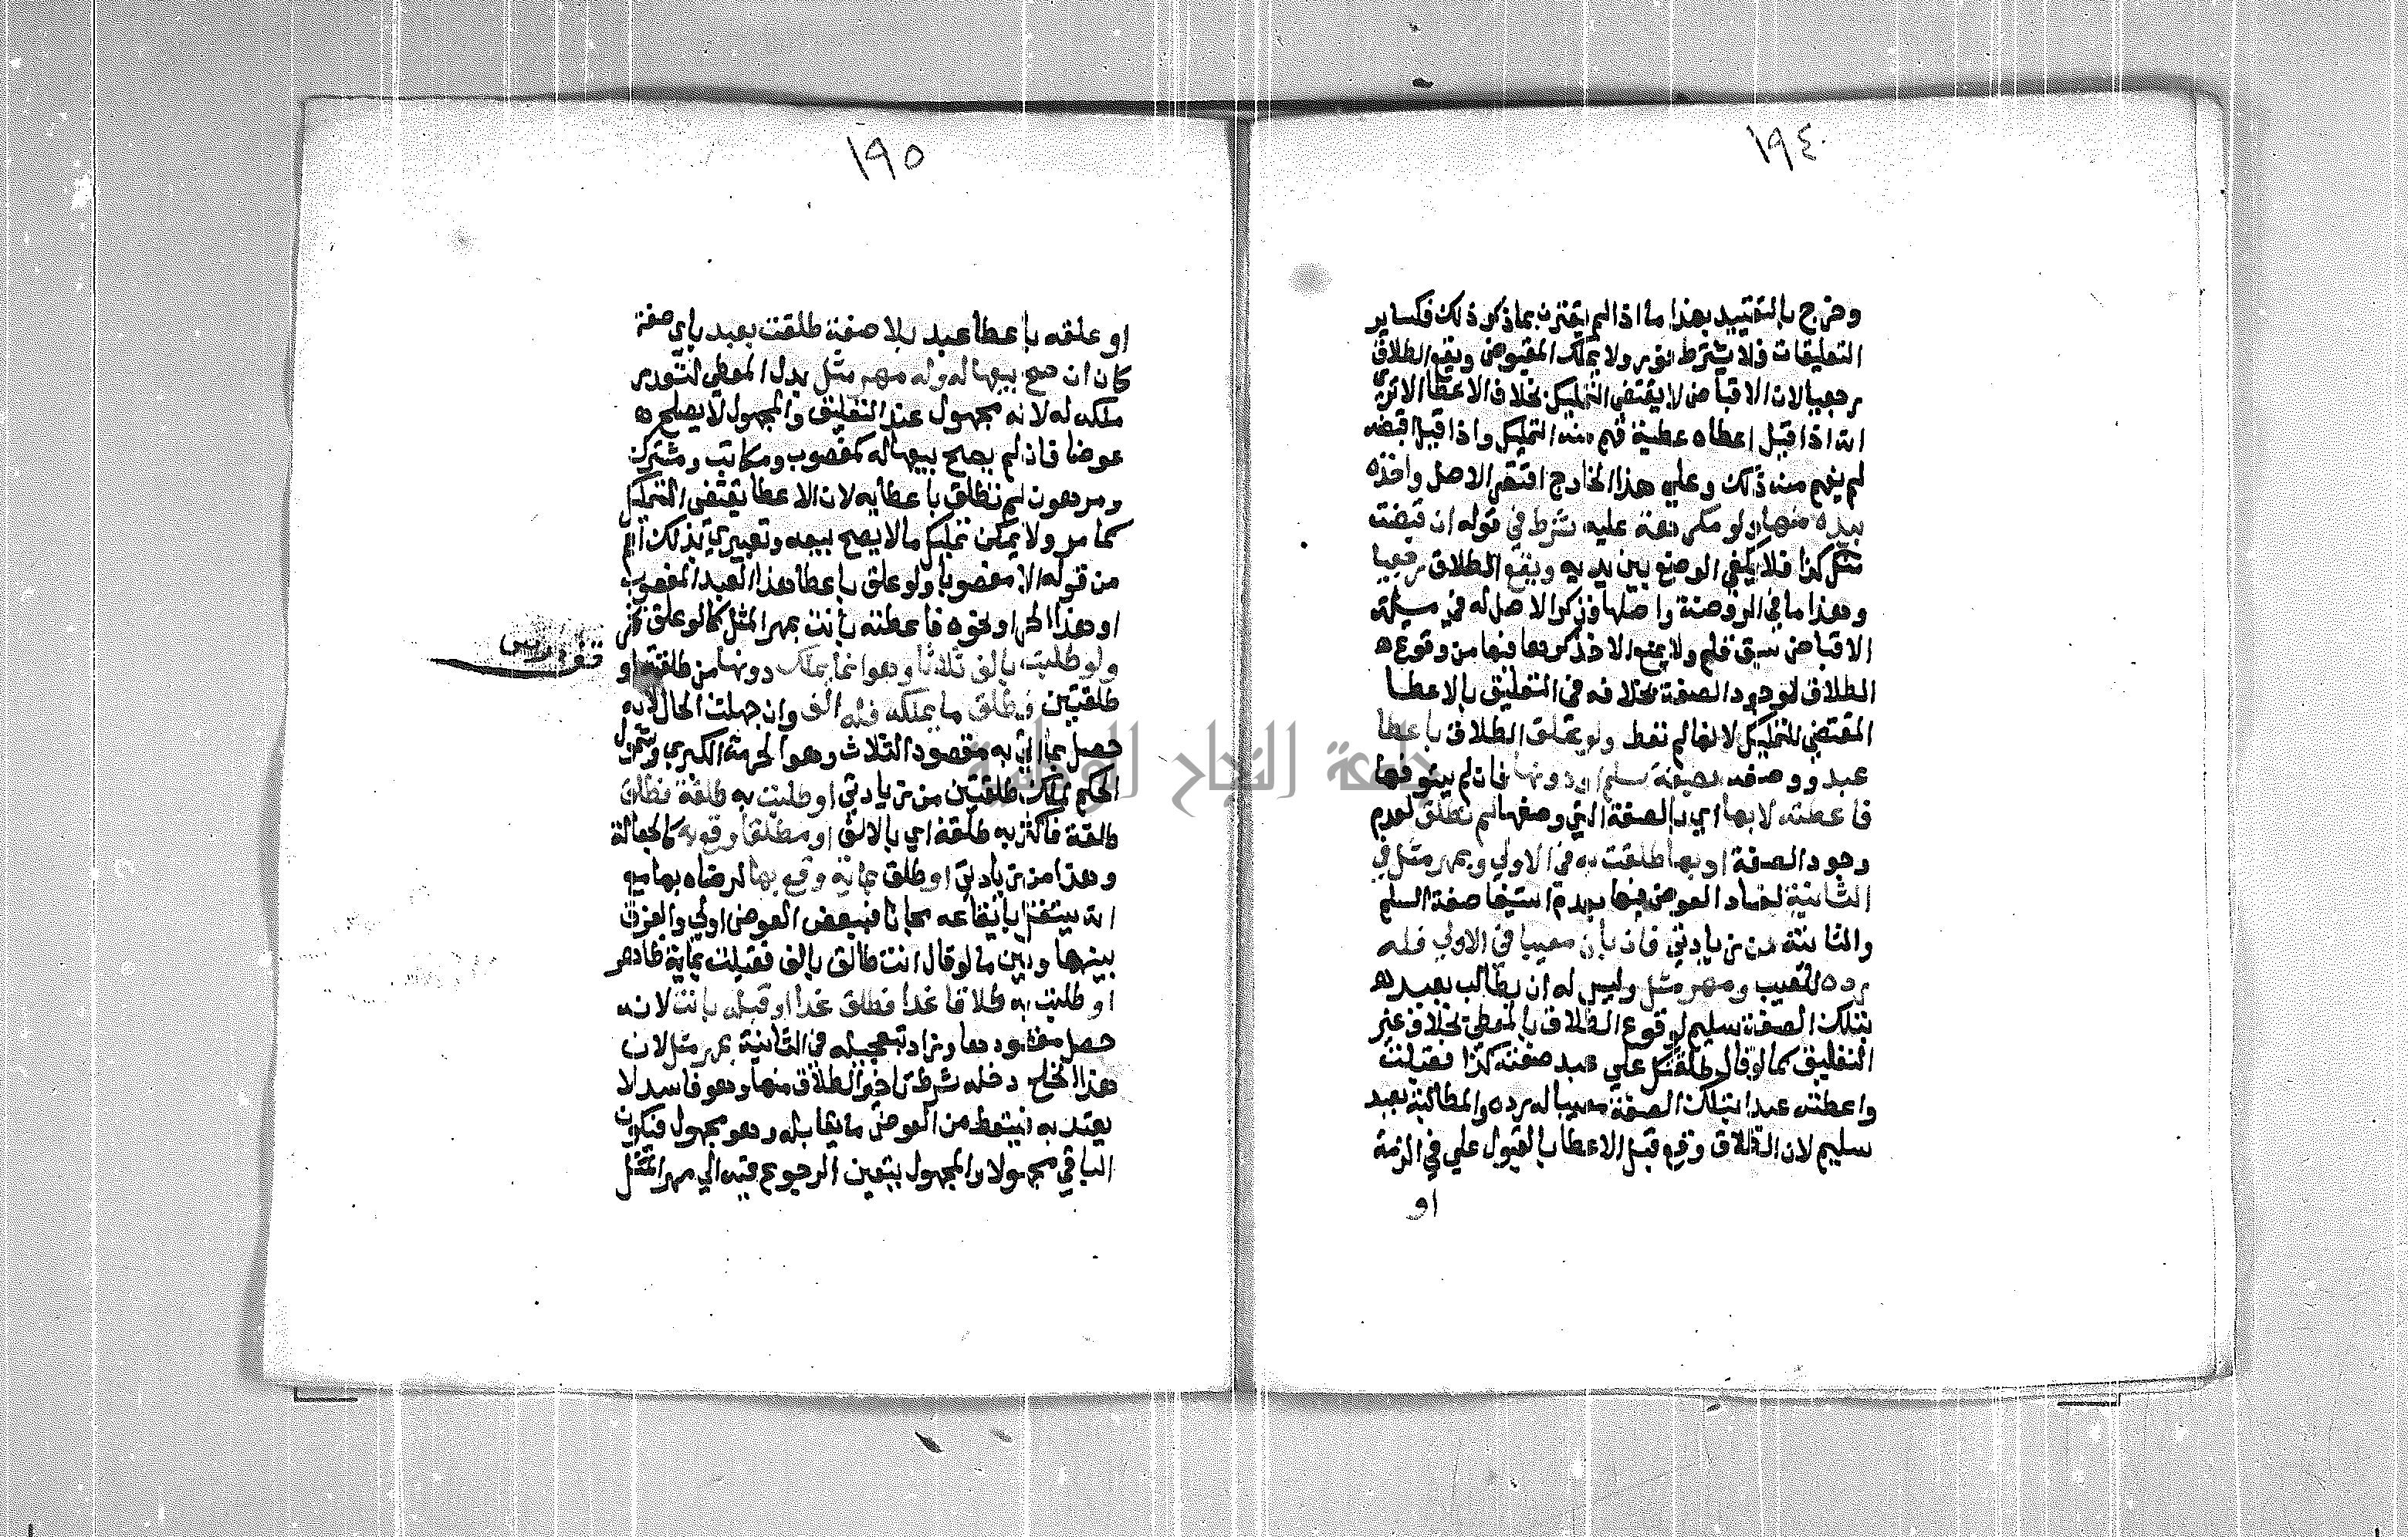 ١٩٤
وخرج بالتقييد بهذا ما اذا لم يقترن بما ذكر ذلك فكساير
التعليقات فلا يشترط فور ولا يملك المقبوض ويقع الطلاق
رجعيا لان الاقباض لا يقتضي التمليك بخلاف الاعطا الا ترى
انه اذا قيل اعطاه عطية فهم منه التمليك واذا قيل اقبضه
لم يفهم منه ذلك وعلي هذا الخارج اقتصر الاصل واخذه
بيده منها ولو مكرهة عليه شرط في قوله ان قبضت
منك كذا فلا يكفي الوضع بين يديه ويقع الطلاق رجعيا
وهذا ما في الروضة واصلها فذكر الاصل له في مسيلة
الاقباض سبق قلم ولا يمنع الاخذ كرها فيها من وقوع
الطلاق لوجود الصفة بخلافه في التعليق بالاعطا
المقتضي للتمليك لانها لم تعط ولو علق الطلاق باعطا
عبد ووصفه بصفة سلم او دونها فان لم يستوفها
فاعطته لا بها اي بالصفة التي وصفها لم تطلق لعدم
وجود الصفة او بها طلقت به في الاولي وبمهر مثل في
الثانية لفساد العوض فيها بعدم استيفا صفة السلم
والثانية من زيادتي فان بان معيبا في الاولي فله
رده للعيب ومهر مثل وليس له ان يطالب بعبد
بتلك الصفة سليم لوقوع الطلاق بالمعطي بخلاف غير
التعليق كما لو قال طلقتك علي عبد صفته كذا فقبلت
واعطته عبدا بتلك الصفة معيبا له رده والمطالبة بعبد
سليم لان الطلاق وقع قبل الاعطا بالقبول علي في الذمة
او
١٩٥
او علقه باعطا عبد بلا صفة طلقت بعبد باي صفة
كان ان صح بيعها له وله مهر مثل بدل المعطي لتعذر
ملكه له لانه مجهول عند التعليق والمجهول لا يصلح
عوضا فان لم يصح بيعها له كمغصوب ومكاتب ومشترك
ومرهون لم تطلق باعطايه لان الاعطا يقتضي التمليك
كما مر ولا يمكن تمليك ما لا يصح بيعه وتعبيري بذلك اعم
من قوله الا مغصوبا ولو علق باعطا هذا العبد المغصوب
او هذا الحر او نحوه فاعطته بانت بمهر المثل كما لو علق بخمر
ولو طلبت بالف ثلاثا وهو انما يملك دونها من طلقة او
طلقتين فطلق ما يملكه فله الف وان جهلت الحال لانه
حصل بما اتى به مقصود الثلاث وهو الحرمة الكبري وشمول
الحكم لملك طلقتين من زيادتي او طلبت به طلقة فطلق
طلقة فاكثر به طلقة اي بالالف او مطلقا وقع به كالجعالة
وهذا من زيادتي او طلق بماية وقع بها لرضاه بها مع
انه يستقل بايقاعه مجانا فببعض العوض اولي والفرق
بينها وبين ما لو قال انت طالق بالف فقبلت بماية ظاهر
او طلبت به طلاقا غدا فطلق غدا او قبله بانت لانه
حصل مقصودها وزاد بتعجيله في الثانية بمهر مثل لان
هذا الخلع دخله شرط تاخير الطلاق منها وهو فاسد لا
يعتد به فيسقط من العوض ما يقابله وهو مجهول فيكون
الباقي مجهولا والمجهول يتعين الرجوع فيه الي مهر المثل
جامعة النجاح الوطنية